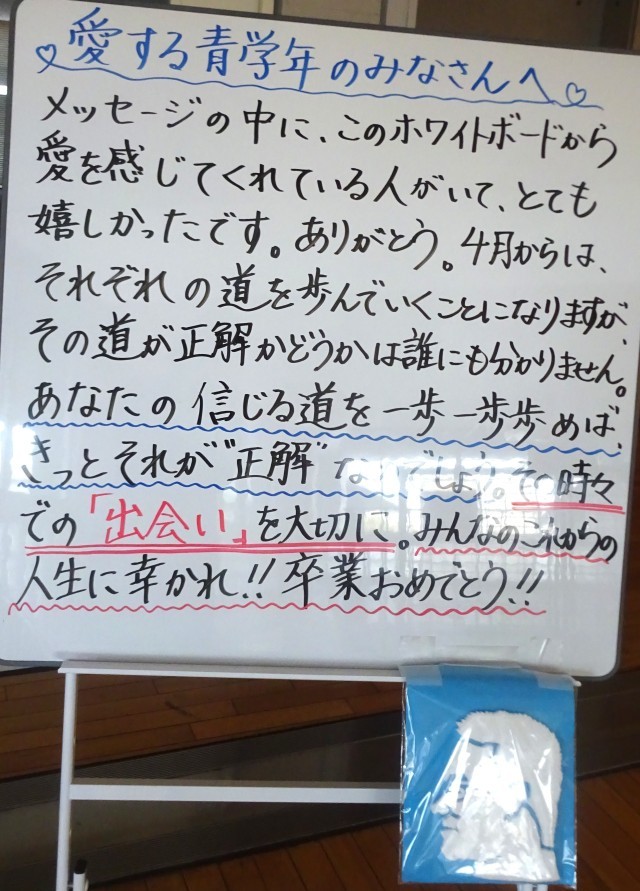 ♡愛する青学年のみなさんへ♡
メッセージの中に、このホワイトボードから
愛を感じてくれている人がいて、とても
嬉しかったです。ありがとう。4月からは、
それぞれの道を歩んでいくことになりますが、
その道が正解かどうかは誰にも分かりません。
あなたの信じる道を一歩一歩歩めば、
きっとそれが"正解"なのでしょう。その時々
での「出会い」を大切に。みんなのこれからの
人生に幸かれ!!卒業おめでとう!!